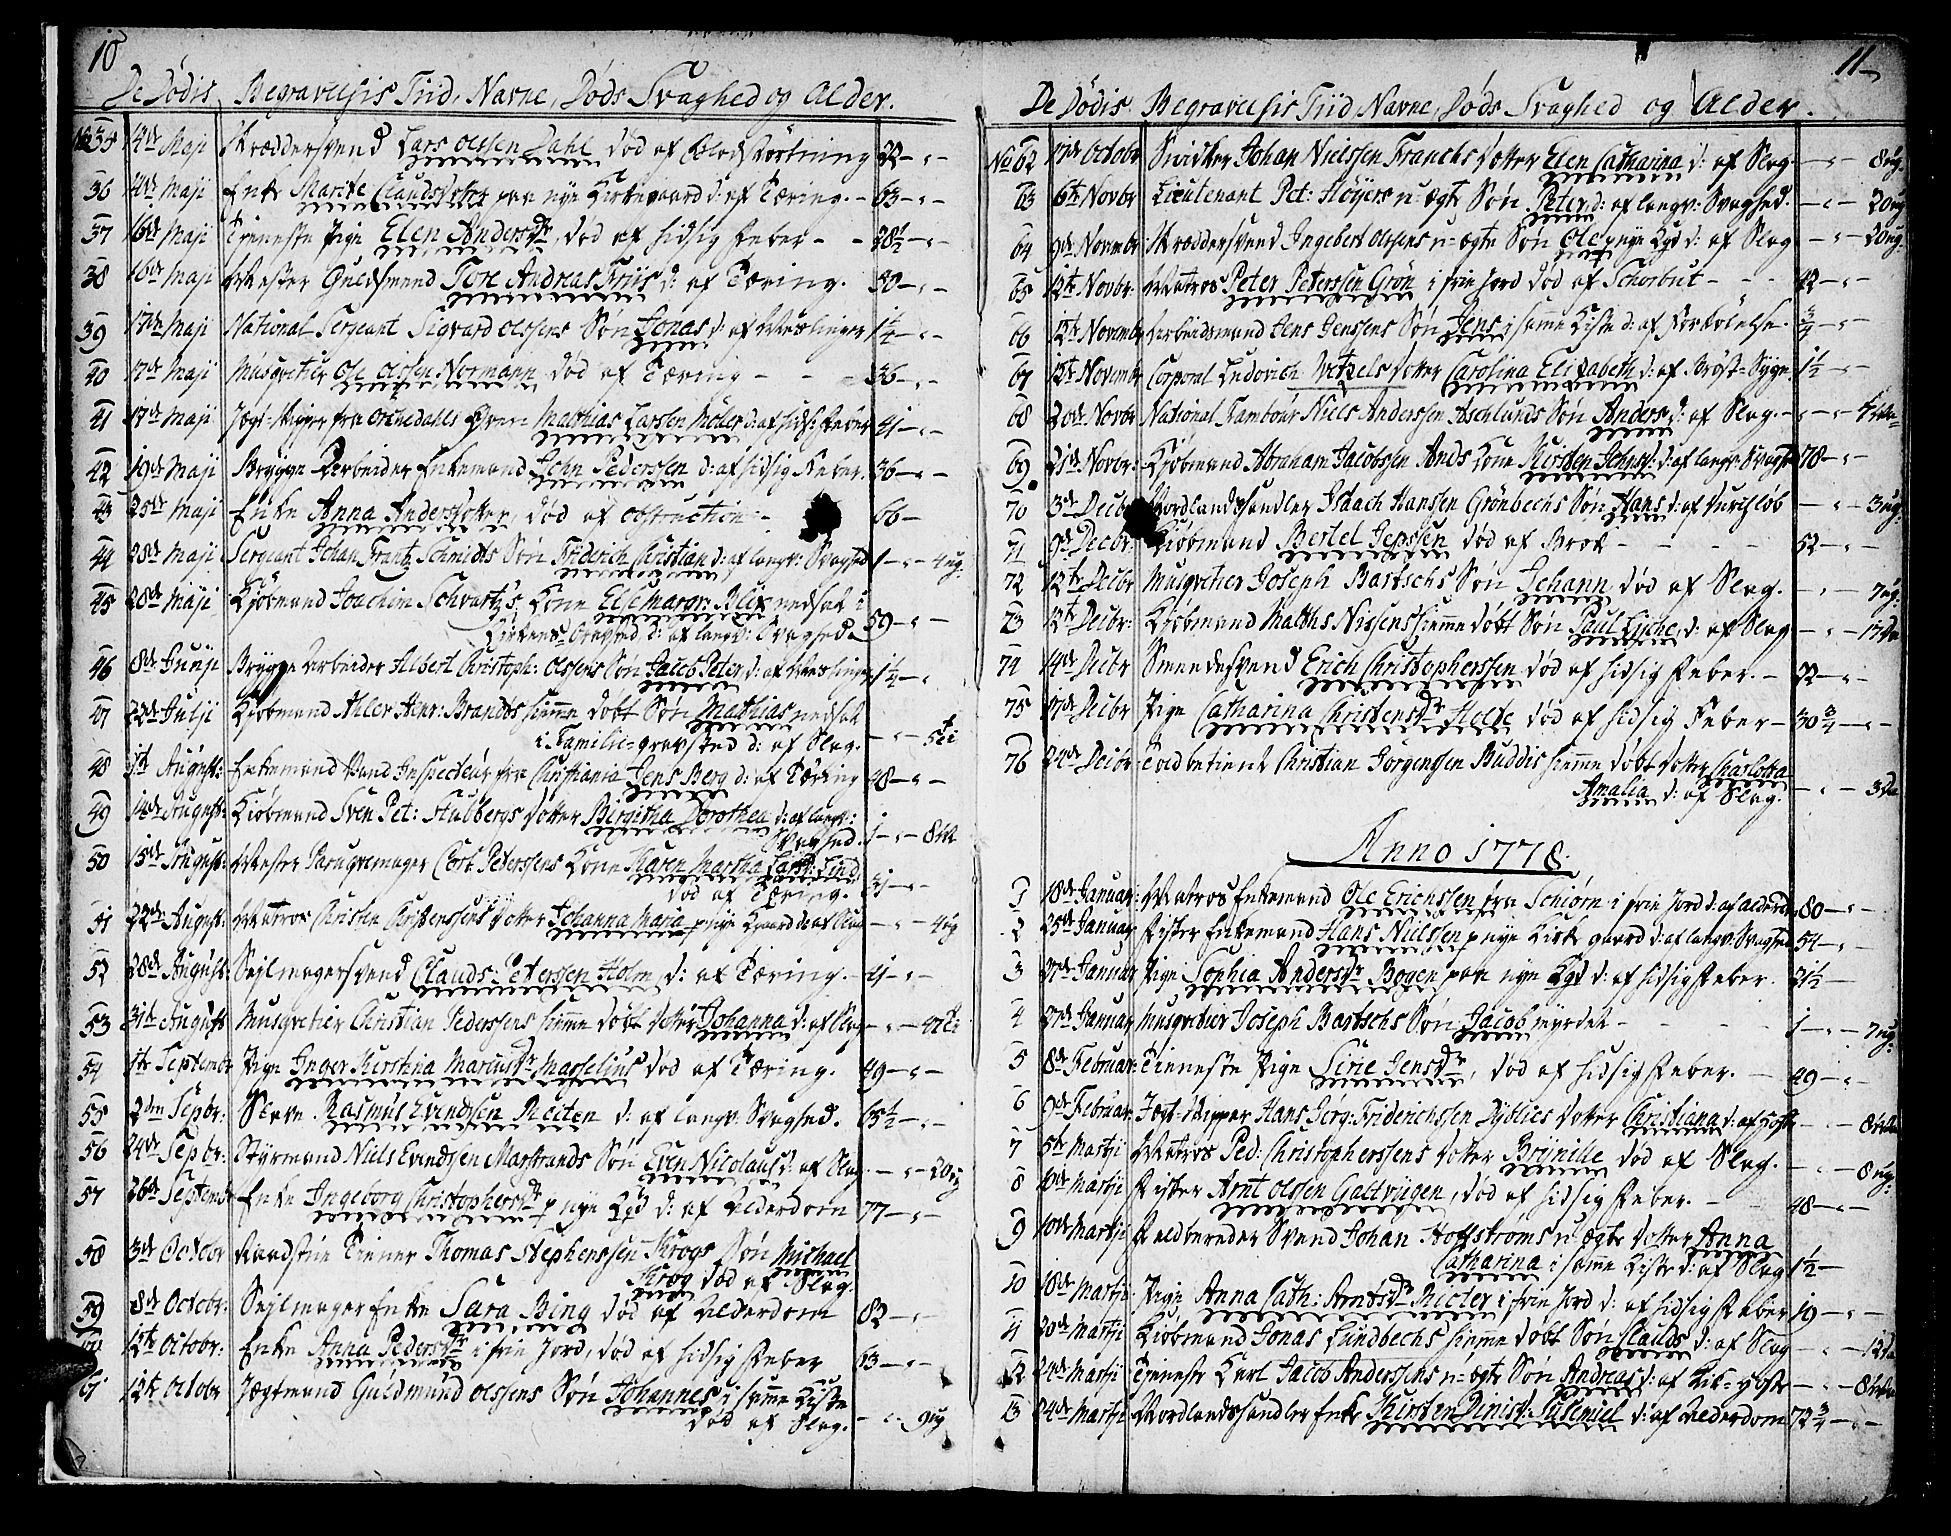 10
De Dödis Begravelsis Tiid, Navne, Döds Svaghed og Alder.
No 35 14de Maji Skræddersvend Lars Olssen Dahl död af Blodstörtning 22 — " —
36 14de Maji Enke Marite Claudsdotter paa nye Kirkegaard d: af Tæring. — 63 — " —
37 16de Maji Tieneste Pige Elen Andersdr, död af hidsig Feber — — 28½ — " —
38 16de Maji Mester Guldsmed Tore Andreas Friis d: af Tæring. 50 — " —
39 17de Maji National Sergeant Sigvard Olssens Sön Jonas d: af Meslinger 1¼ — " —
40 17de Maji Musqvetier Ole Olssen Normann död af Tæring — — — 36 — " —
41 17de Maji Jægt-Skipper fra Orkedahls Ören Mathias Larssen Möller d: af hids: Feber 41 — " —
42 19de Maji Brygge Arbeider Enkemand John Pederssen d: af hidsig Feber. 36 — " —
43 25de Maji Enke Anna Andersdotter, död af Obstruction — 66 —
44 28de Maji Sergeant Johan Frantz Schmidts Sön Friderich Christian d: af langv: Svaghed 1 — " — 4 ug:
45 28de Maji Kjöbmand Joachim Schvartz's Kone Else Margr: Blix nedsat i
Kirkens Gravsted d: af langv: Svaghed. 59 — " —
46 8de Junji Brygge Arbeider Albert Christoph: Olssens Sön Jacob Peter d: af Meslinger 1¼ — "
47 22de Julji Kjöbmand Ahler Henr: Brandts hiemme döbt Sön Mathias nedsat
i Familie-gravsted d: af Slag. — " — 5 ti
48 1te August: Enkemand Vand Inspecteur fra Christiania Jens Berg d: af Tæring 48 — " —
49 14de August: Kjöbmand Sven Pet: Hulbergs Dotter Birgitha Dorothea d: af langv:
Svaghed. 1 — " — 8
50 15de August: Mester Paruqvemager Carl Peterssens Kone Karen Martha Larsdr: Lind
död af Tæring. — " —
51 22de August: Matros Christen Christenssens Dotter Johanna Maria p nye Kgaard d: af Slag — " — 4 ug
52 28de August: Sejlmagersvend Clauds: Peterssen Holm d: af Tæring. 41 — " —
53 31te August Musqvetier Christian Pederssens hiemme döbt Dotter Johanna d: af Slag — " — 47 ti
54 1te Septembr Pige Inger Kirstina Mariusdr Masselius död af Tæring. 49 — " —
55 2den Sepbr: Slave Rasmus Evindssen Reiten d: af langv: Svaghed. 65½ — " —
56 24de Sepbr: Styrmand Niels Evindssen Mastrands Sön Even Nicolaus d: af Slag. — " — 20 ug
57 26de Septembr Enke Ingeborg Christophersdr p nye Kgd d: af Alderdom 77 — " —
58 3de Octobr Raadstue Tiener Thomas Stephenssen Krogs Sön Michael
Krog död af Slag.
59 8de Octobr: Sejlmager Enke Sara Bing död af Alderdom 82 — " —
60 12te Octobr: Enke Anna Pedersdr i frie Jord, död af hidsig Feber 63 — " —
61 12te Octobr Jægtmand Guldmund Olssens Sön Johannes i samme Kiste
död af Slag. — " — 9 ug
11
De Dödis Begravelsis Tiid Navne, Döds Svaghed og Alder.
No 62 17de Octobr Snidker Johan Nielssen Francks Dotter Elen Catharina d: af Slag. — " — 8 ug.
63 6te Novbr Lieutenant Pet: Höyers u-ægte Sön Peter d: af langv: Svaghed. — " — 20 ug
64 9de Novembr Skræddersvend Ingebert Olssens u-ægte Sön Ole p nye Kgd d: af Slag — " — 20 ug:
65 12te Novbr: Matros Peter Peterssen Grön i frie Jord död af Schorbut — — — 42 — " —
66 12te Novembr Arbeidsmand Jens Jenssens Sön Jens i samme Kiste d: af Forkölelse. ¾ — " —
67 12te Novembr Corporal Ludovich Wetzels Dotter Carolina Elisabeth d: af Bröst-Syge 1½ — " —
68 20de Novbr National Tambour Niels Anderssen Aschlunds Sön Anders d: af Slag. — " —
69 21de Novbr: Kjöbmand Abraham Jacobssen Ands Kone Kirsten Johnsd: d: af langv: Svagh: 78 — " —
70 3de Decbr Nordlandshandler Isaach Hanssen Grönbechs Sön Hans d: af Durchlöb — " — 3 ug:
71 9de Decbr: Kjöbmand Bertel Jepssen död af Brok — — — — 52 — " —
72 12te Decbr Musqvetier Joseph Bartschs Sön Johann, död af Slag. — " — 7 ug:
73 12te Decbr: Kjöbmand Matths Nissens hiemme döbt Sön Paul Lyche, d: af Slag — " — 17 Da
74 14de Decbr Smeedesvend Erich Christopherssen död af hidsig Feber. — 22 — " —
75 17de Decbr Pige Catharina Christensdr Holte död af hidsig Feber — 30¾ — " —
76 24de Decbr Toldbetient Christian Jörgenssen Buddis hiemme döbt Dotter Charlotta
Amalia d: af Slag. — " — 3 Da
Anno 1778.
1 18de Januar: Matros Enkemand Ole Erichssen fra Schiörn i frie Jord d: af Alderdom 80 — " —
2 25de Januar Fisker Enkemand Hans Nielssen p nye Kirkgaard d: af langv: Svaghed 54 — " —
3 27de Januar Pige Sophia Andersdr Bogen paa nye Kgd d: af hidsig Feber. 21½ —
4 27de Januar Musqvetier Joseph Bartschs Sön Jacob myrdet — — — 1 — " — 7 ug:
5 8de Februar: Tieneste Pige Sirie Jensdr, död af hidsig Feber. — 49 — " —
6 9de Februar: Jægt-Skipper Hans Jörg: Friderichssen Dyblies Dotter Christiana d: af Hoste — " —
7 5te Martji Matros Ped: Christopherssens Dotter Brynille död af Slag. — " — 8 ug:
8 10de Martji Fisker Arnt Olssen Galtvigen, död af hidsig Feber. — 48 — " —
9 10de Martji Feldbereder Svend Johan Hoffströms u-ægte Dotter Anna
Catharina i samme Kiste d: af Slag 1½ —
10 18de Martji Pige Anna Cath: Arntsdr Ricter i frie Jord d: af hidsig Feber 19 — " —
11 20de Martji Kjöbmand Jonas Lundbechs hiemme döbt Sön Clauds d: af Slag — " — 12 Da
12 24de Martji Tieneste Karl Jacob Anderssens u-ægte Sön Andreas d: af Kik-Hoste — " —
13 24de Martji Nordlandshandler Enke Kirsten Dinisd: Susemiel d: af Alderdom 72¾ — " —